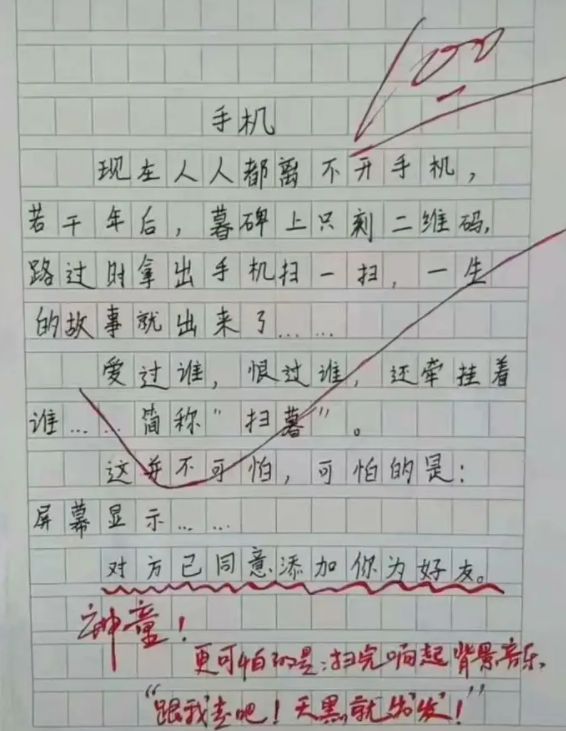 100
手机
现在人人都离不开手机，
若干年后，暮碑上只刻二维码，
路过时拿出手机扫一扫，一生
的故事就出来了……
爱过谁，恨过谁，还牵挂着
谁……简称“扫暮”。
这并不可怕，可怕的是：
屏幕显示……
对方已同意添加你为好友。
神童！
更可怕的是：扫完响起背景音乐，
“跟我走吧！天黑就出发！”